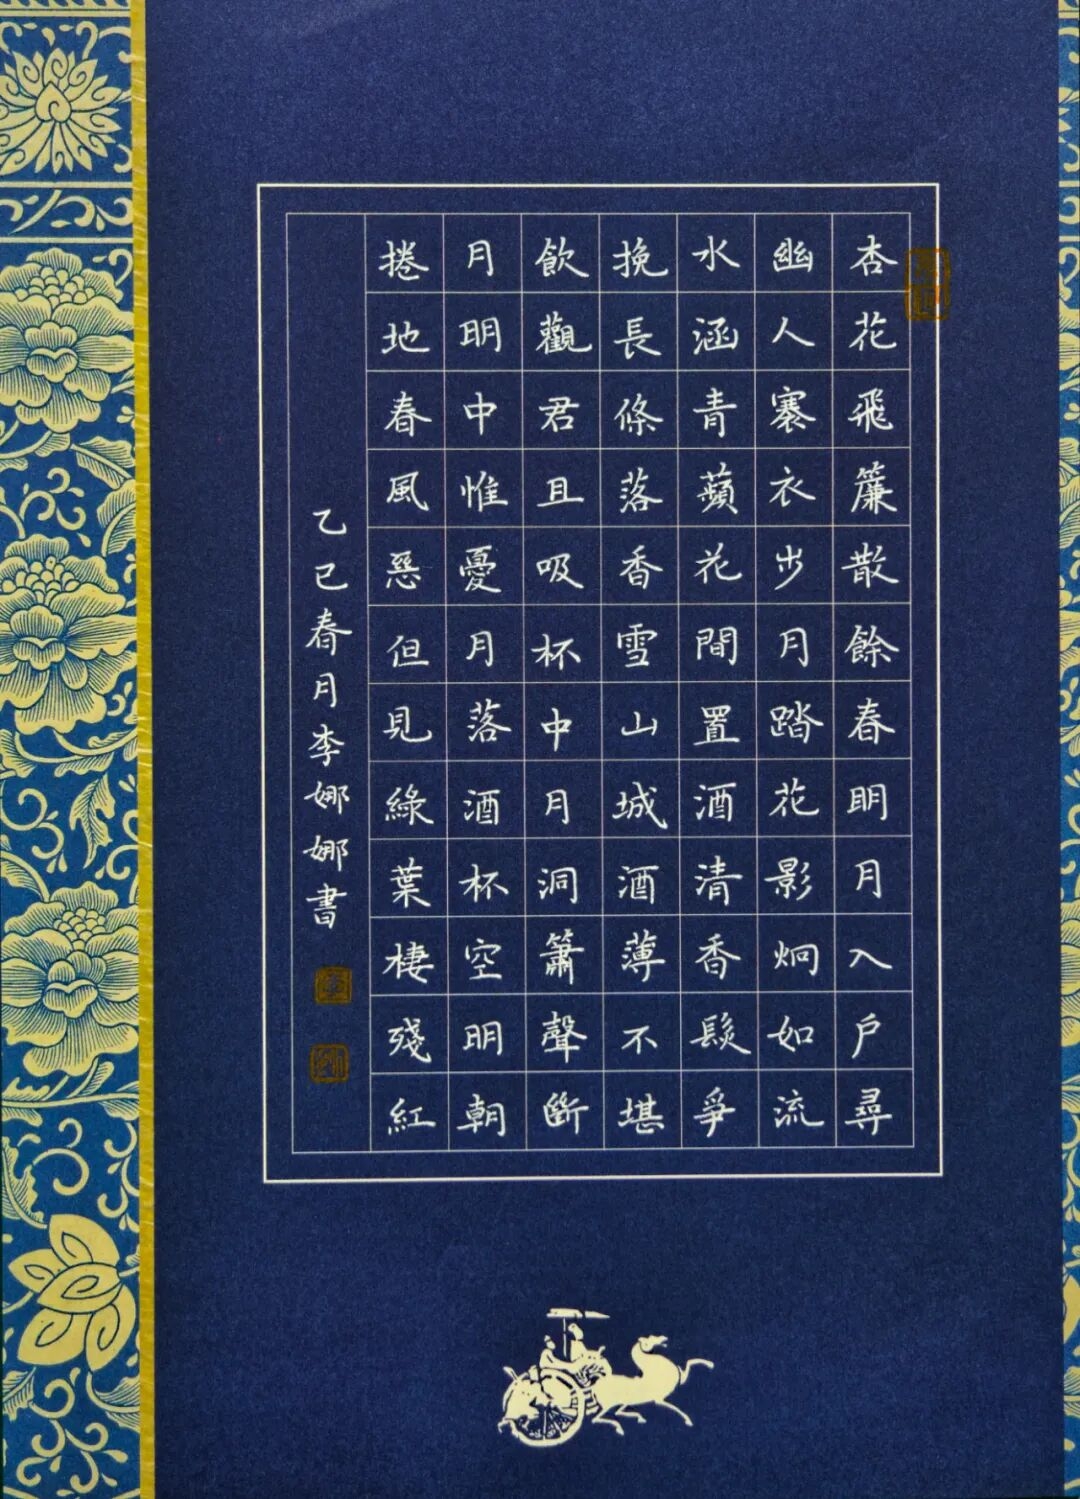 杏花飛簾散餘春明月入戶尋
幽人褰衣步月踏花影炯如流
水涵青蘋花間置酒清香髮爭
挽長條落香雪山城酒薄不堪
飲觀君且吸杯中月洞簫聲斷
月明中惟憂月落酒杯空明朝
捲地春風惡但見綠葉棲殘紅
乙巳春月李娜娜書